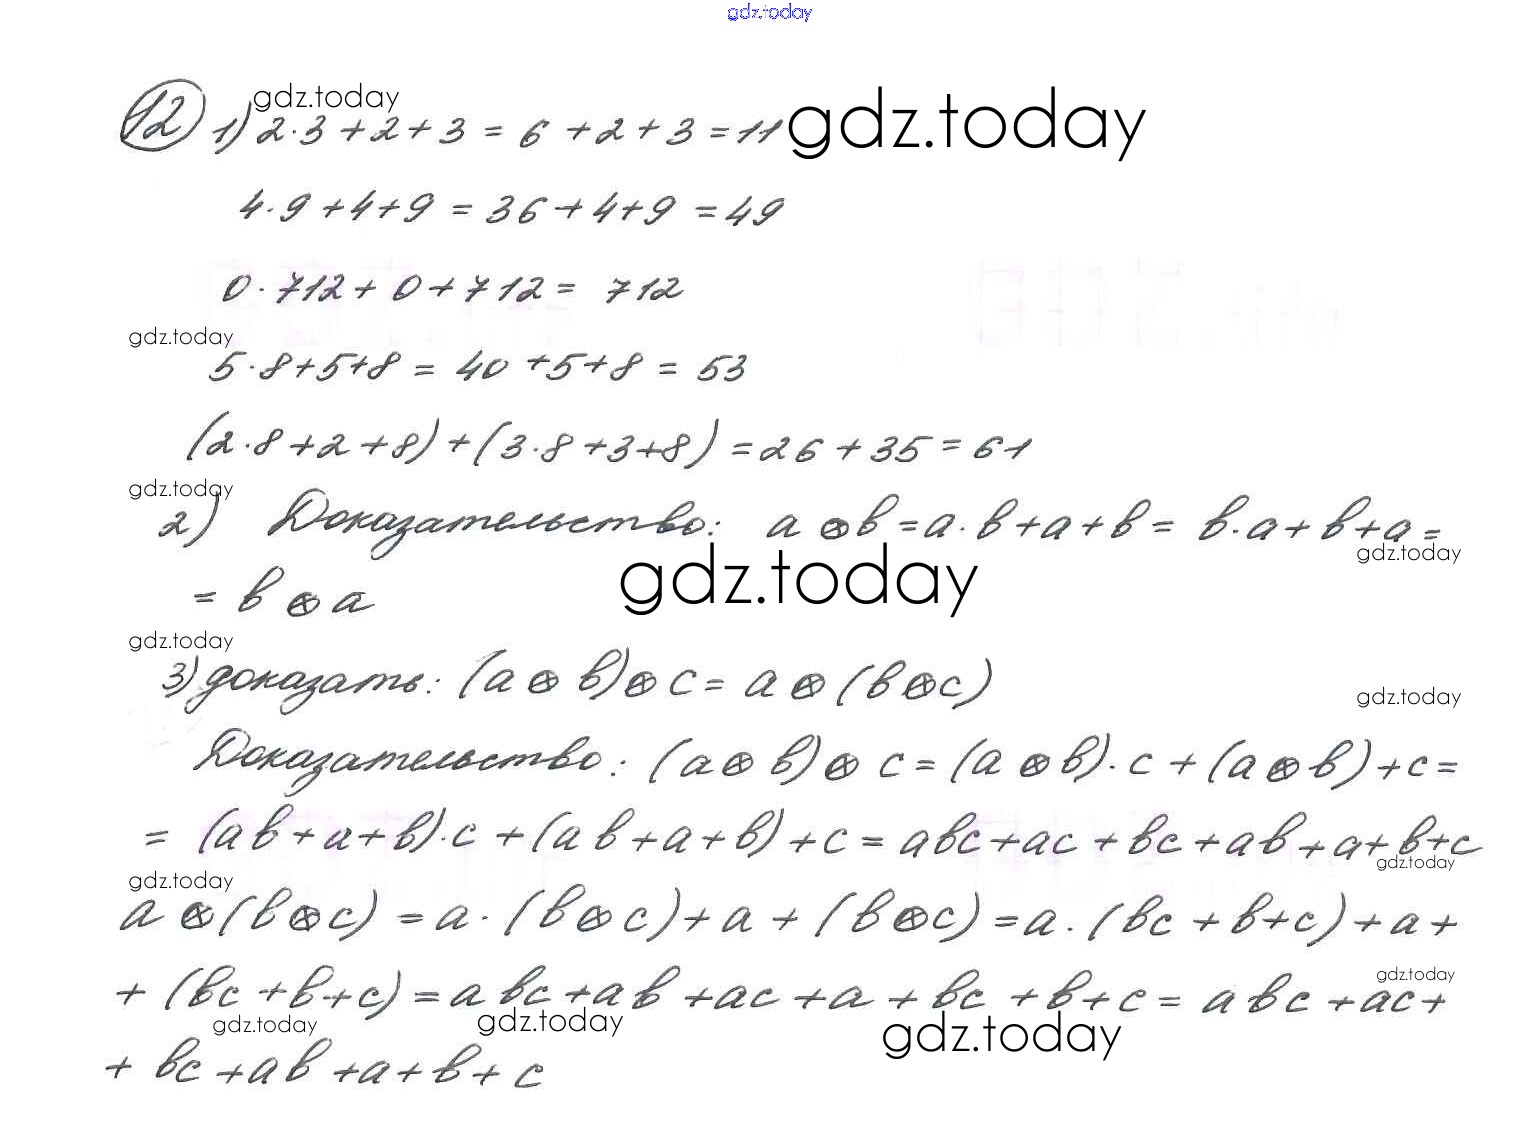 gdz.today
12 1) 2·3+2+3 = 6+2+3 = 11
gdz.today
gdz.today
4·9+4+9 = 36+4+9 = 49
0·712+0+712 = 712
gdz.today
5·8+5+8 = 40+5+8 = 53
(2·8+2+8)+(3·8+3+8) = 26+35 = 61
gdz.today
2) Доказательство: a⊗b = a·b+a+b = b·a+b+a =
gdz.today
gdz.today
= b⊗a
gdz.today
3) доказать: (a⊗b)⊗c = a⊗(b⊗c)
gdz.today
Доказательство: (a⊗b)⊗c = (a⊗b)·c+(a⊗b)+c =
= (ab+a+b)·c+(ab+a+b)+c = abc+ac+bc+ab+a+b+c
gdz.today
gdz.today
a⊗(b⊗c) = a·(b⊗c)+a+(b⊗c) = a·(bc+b+c)+a+
gdz.today
+(bc+b+c) = abc+ab+ac+a+bc+b+c = abc+ac+
gdz.today
gdz.today
gdz.today
+bc+ab+a+b+c